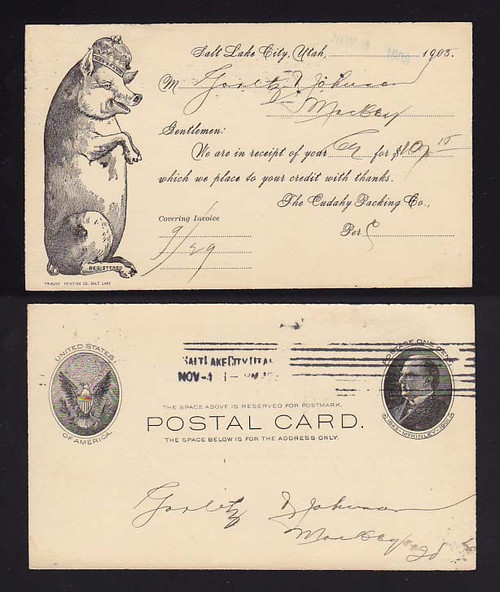 Salt Lake City, Utah, NOV -4 1903.
M Goolitz & Johnson
Mackay
Gentlemen:
We are in receipt of your for $10.15
which we place to your credit with thanks.
The Cudahy Packing Co.,
Covering Invoice
Per
9/29
REGISTERED
TRIBUNE PRINTING CO. SALT LAKE
UNITED STATES
OF AMERICA.
SALT LAKE CITY, UTAH
NOV -4 1-
POSTAGE ONE CENT.
1843 - MCKINLEY - 1901
THE SPACE ABOVE IS RESERVED FOR POSTMARK.
POSTAL CARD.
THE SPACE BELOW IS FOR THE ADDRESS ONLY.
& Johnson
Mackay
Id